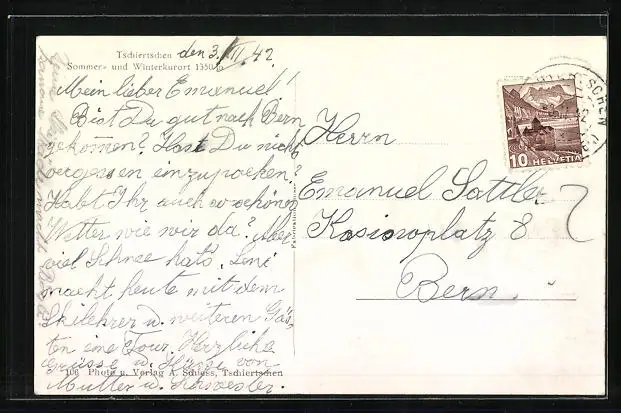 Tschiertschen den 3./III. 42
Sommer- und Winterkurort 1350 m
Mein lieber Emanuel!
Bist Du gut nach Bern
gekommen? Hast Du nichts
vergessen einzupacken?
Habt Ihr auch so schönes
Wetter wie wir da? Aber
viel Schnee hats. Leni
macht heute mit dem
Skilehrer u. weiteren Gäs-
ten eine Tour. Herzliche
Grüsse u. Küsse von
Mutter u. Schwester.
106 Photo u. Verlag A. Schloss, Tschiertschen
Herrn
Emanuel Sattler
Kasinoplatz 8
Bern.
10 HELVETIA